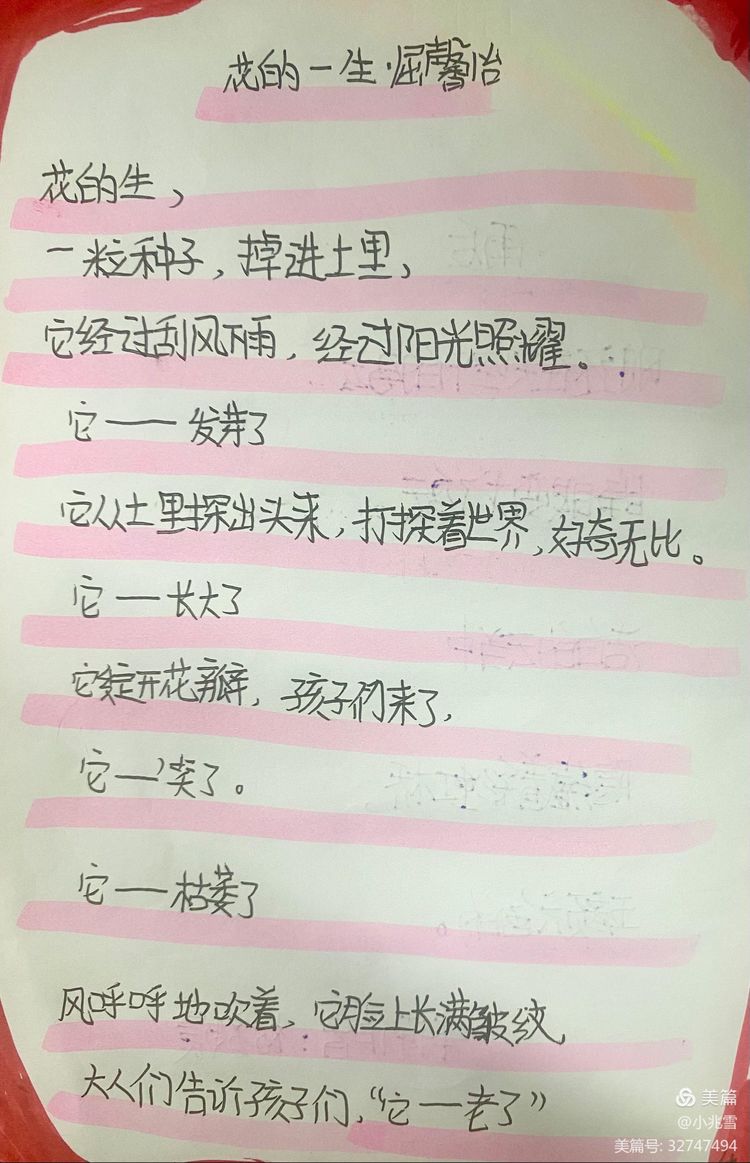 花的一生·屈馨怡
花的生，
一粒种子，掉进土里，
它经过刮风下雨，经过阳光照耀。
它——发芽了
它从土里探出头来，打探着世界，好奇无比。
它——长大了
它绽开花瓣，孩子们来了，
它——笑了。
它——枯萎了
风呼呼地吹着，它脸上长满皱纹，
大人们告诉孩子们，“它——老了”
美篇
@小兆雪
美篇号: 32747494